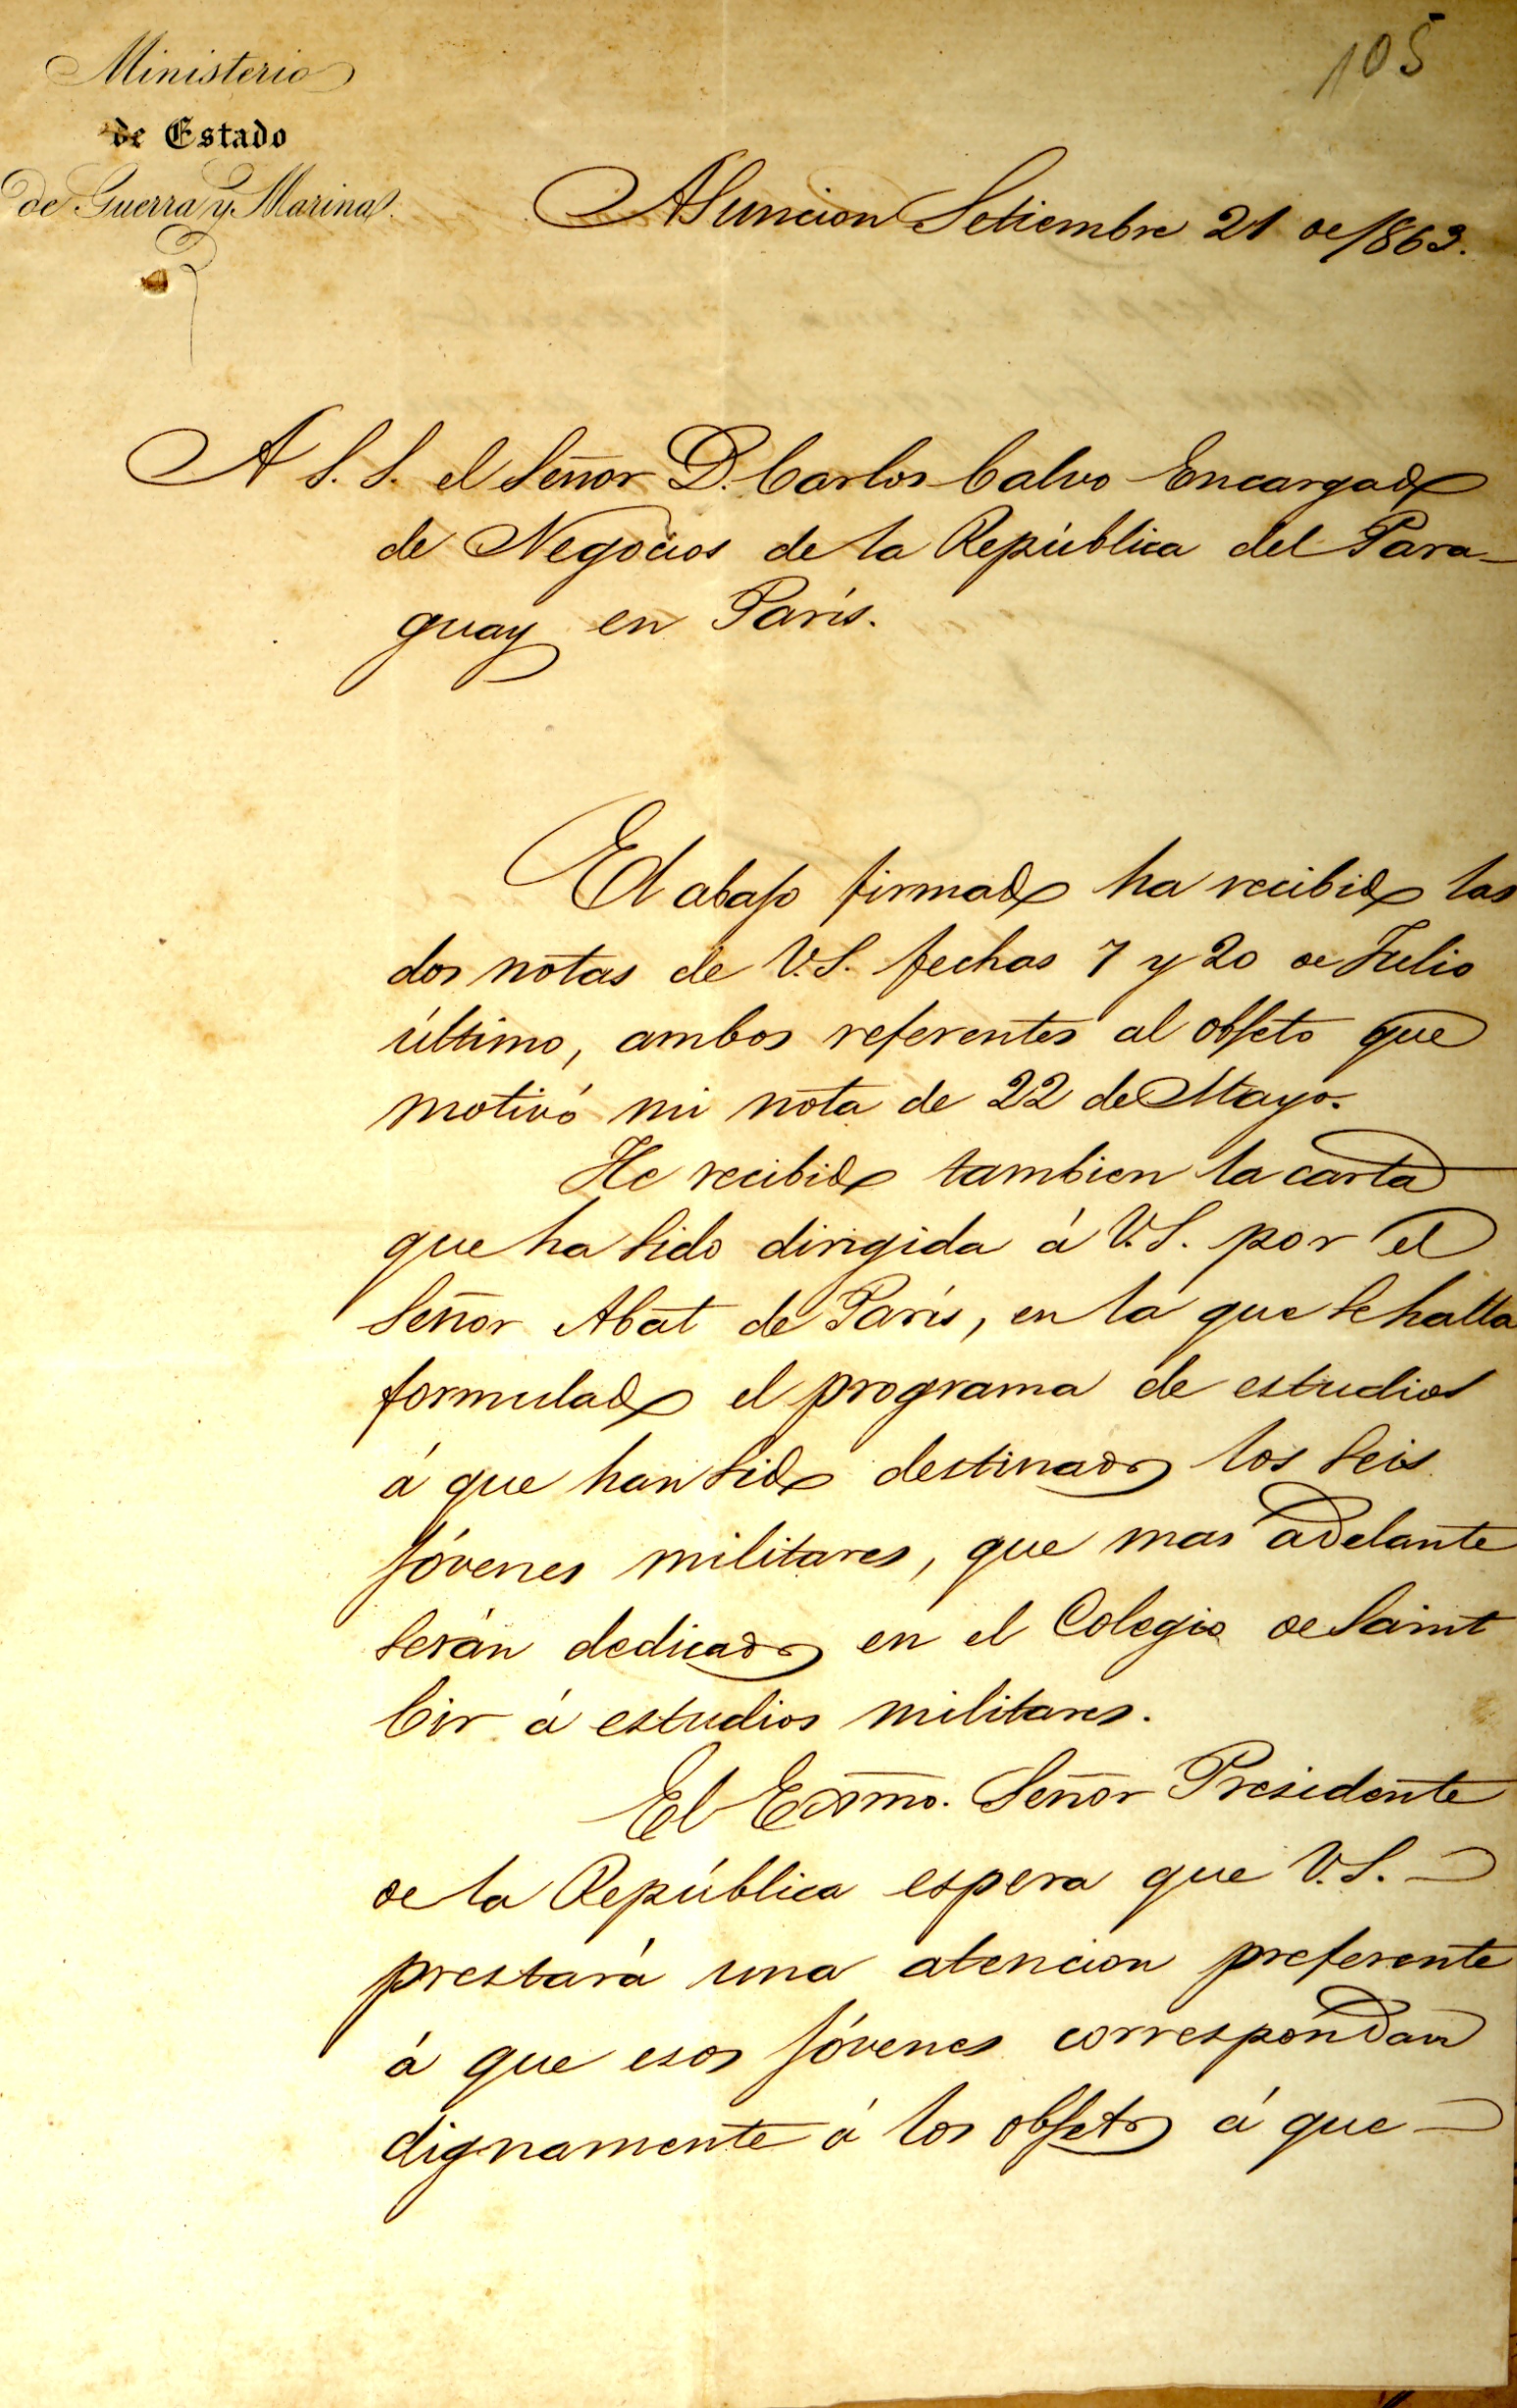 105
Ministerio
de Estado
de Guerra y Marina.
Asuncion Setiembre 21 de 1863.
A S. S. el Señor D. Carlos Calvo Encargado
de Negocios de la República del Para-
guay en Paris.
El abajo firmado ha recibido las
dos notas de V.S. fechas 7 y 20 de Julio
último, ambos referentes al objeto que
motivó mi nota de 22 de Mayo.
He recibido tambien la carta
que ha sido dirigida á V.S. por el
Señor Abat de Paris, en la que se halla
formulado el programa de estudios
á que han sido destinados los seis
jóvenes militares, que mas adelante
serán dedicados en el Colegio de Saint
Cir á estudios militares.
El Exmo. Señor Presidente
de la República espera que V.S.
prestará una atencion preferente
á que esos jóvenes correspondan
dignamente á los objetos á que